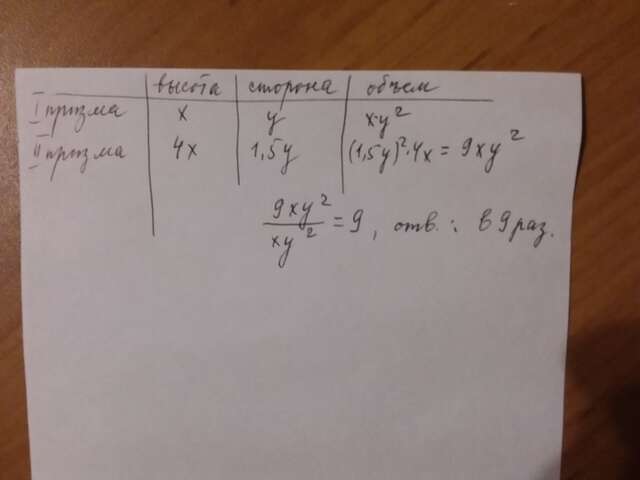 высота сторона объем
I призма x y x·y²
II призма 4x 1,5y (1,5y)²·4x = 9xy²
9xy²/xy² = 9, отв: в 9 раз.